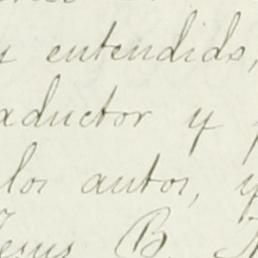 y entendido,
aductor y
los autos, y
Jesus B.